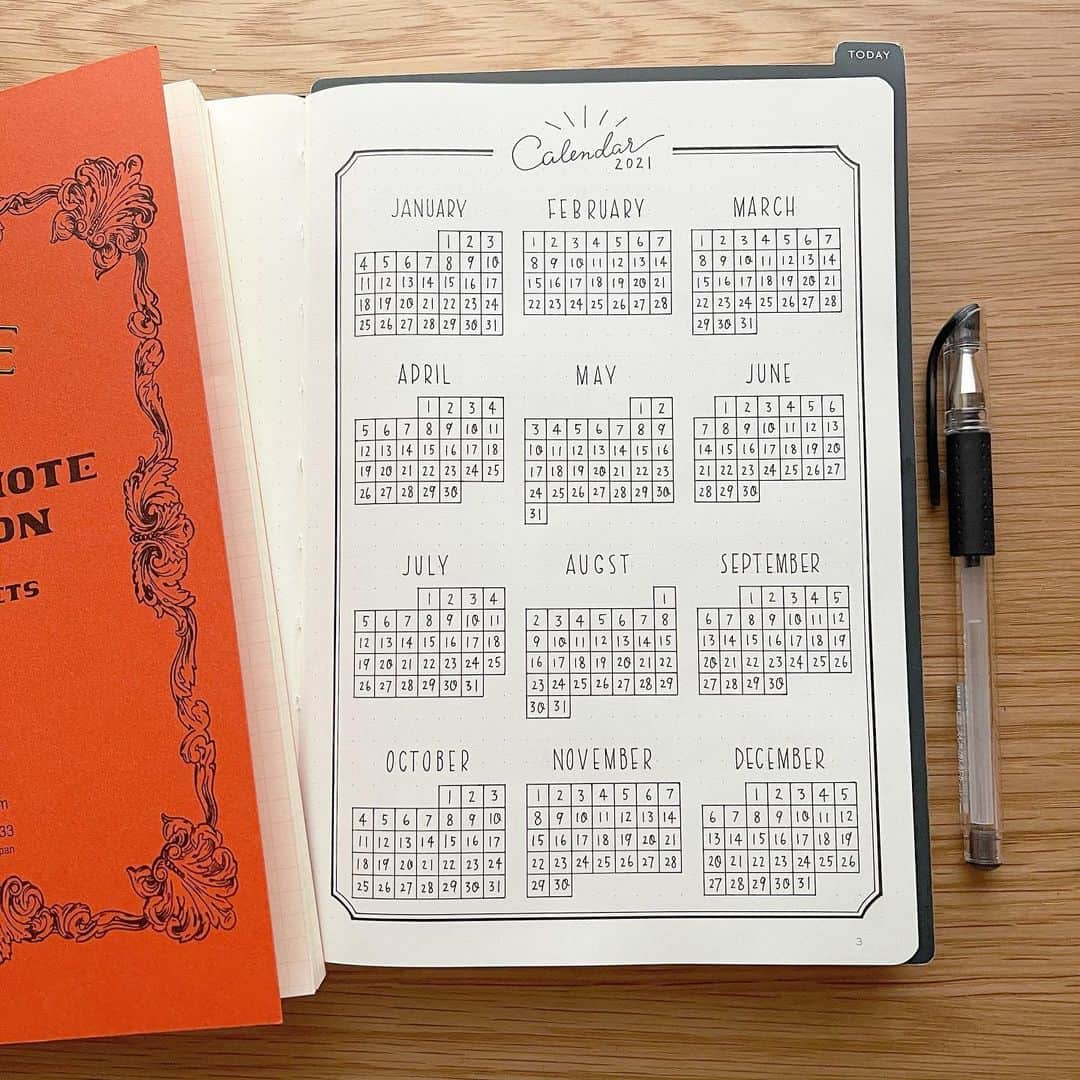 TODAY
Calendar
2021
JANUARY
1 2 3
4 5 6 7 8 9 10
11 12 13 14 15 16 17
18 19 20 21 22 23 24
25 26 27 28 29 30 31
FEBRUARY
1 2 3 4 5 6 7
8 9 10 11 12 13 14
15 16 17 18 19 20 21
22 23 24 25 26 27 28
MARCH
1 2 3 4 5 6 7
8 9 10 11 12 13 14
15 16 17 18 19 20 21
22 23 24 25 26 27 28
29 30 31
APRIL
1 2 3 4
5 6 7 8 9 10 11
12 13 14 15 16 17 18
19 20 21 22 23 24 25
26 27 28 29 30
MAY
1 2
3 4 5 6 7 8 9
10 11 12 13 14 15 16
17 18 19 20 21 22 23
24 25 26 27 28 29 30
31
JUNE
1 2 3 4 5 6
7 8 9 10 11 12 13
14 15 16 17 18 19 20
21 22 23 24 25 26 27
28 29 30
JULY
1 2 3 4
5 6 7 8 9 10 11
12 13 14 15 16 17 18
19 20 21 22 23 24 25
26 27 28 29 30 31
AUGST
1
2 3 4 5 6 7 8
9 10 11 12 13 14 15
16 17 18 19 20 21 22
23 24 25 26 27 28 29
30 31
SEPTEMBER
1 2 3 4 5
6 7 8 9 10 11 12
13 14 15 16 17 18 19
20 21 22 23 24 25 26
27 28 29 30
OCTOBER
1 2 3
4 5 6 7 8 9 10
11 12 13 14 15 16 17
18 19 20 21 22 23 24
25 26 27 28 29 30 31
NOVEMBER
1 2 3 4 5 6 7
8 9 10 11 12 13 14
15 16 17 18 19 20 21
22 23 24 25 26 27 28
29 30
DECEMBER
1 2 3 4 5
6 7 8 9 10 11 12
13 14 15 16 17 18 19
20 21 22 23 24 25 26
27 28 29 30 31
3
E
OTE
ON
CTS
m
33
pan